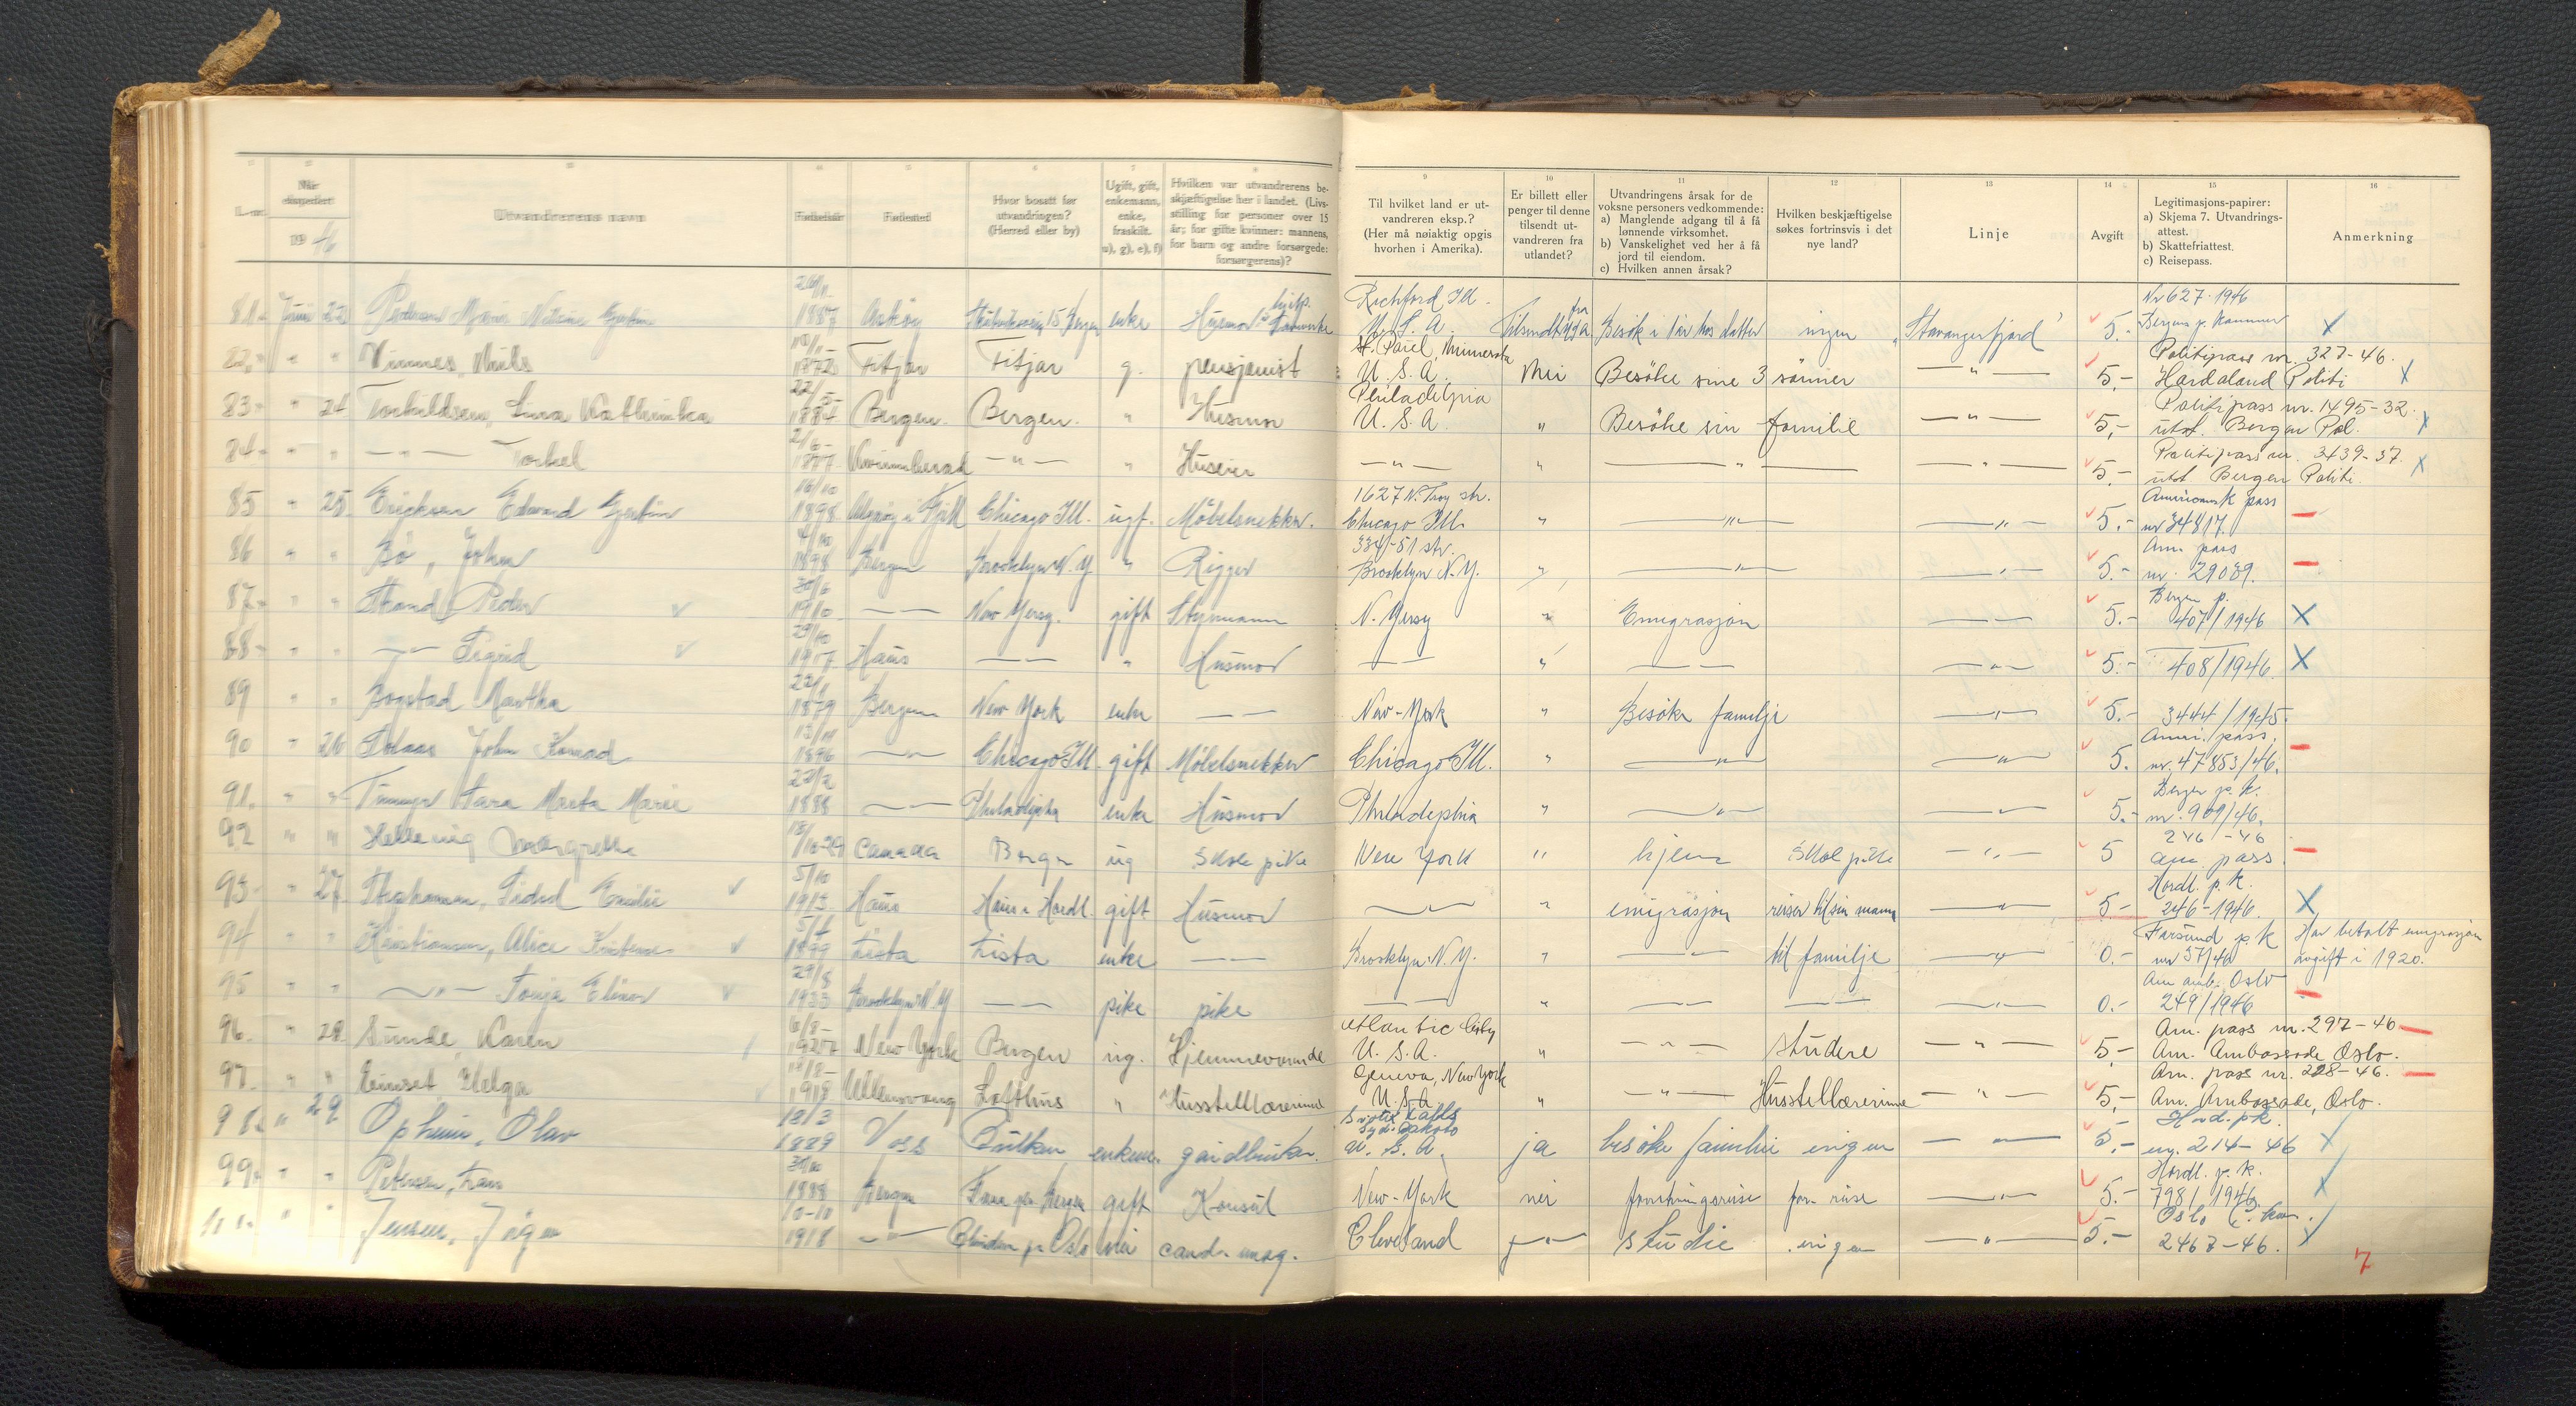 1 2 3 4 5 6 7 8 9 10 11 12 13 14 15 16
L.-nr. Når ekspedert 19 46 Utvandrerens navn Fødselsår Fødested Hvor bosatt før utvandringen? (Herred eller by) Ugift, gift, enkemann, enke, fraskilt. u), g), e), f) Hvilken var utvandrerens beskjæftigelse her i landet. (Livsstilling for personer over 15 år; for gifte kvinner: mannens, for barn og andre forsørgede: forsørgerens)?
Til hvilket land er utvandreren eksp.? (Her må nøiaktig opgis hvorhen i Amerika). Er billett eller penger til denne tilsendt utvandreren fra utlandet? Utvandringens årsak for de voksne personers vedkommende: a) Manglende adgang til å få lønnende virksomhet. b) Vanskelighet ved her å få jord til eiendom. c) Hvilken annen årsak? Hvilken beskjæftigelse søkes fortrinsvis i det nye land? Linje Avgift Legitimasjons-papirer: a) Skjema 7. Utvandringsattest. b) Skattefriattest. c) Reisepass. Anmerkning
81. Juni 22 1887 Askøy enke Richford Ill. U. S. A. Tilsendt fra USA Besøk i 1 år hos datter ingen "Stavangerfjord" 5.- Nr 627-1946 Bergens p. kammer X
82. " " Vinnes, Nils 1872 Fitjar Fitjar g. pensjonist St. Paul, Minnesota U. S. A. Nei Besøke sine 3 sønner — " — 5,- Politipass nr. 327-46. Hordaland Politi X
83. " 24 Torkildsen, Lina Kathinka 22/5 1884 Bergen. Bergen. " Husmor Philadelphia U. S. A. " Besøke sin familie — " — 5,- Politipass nr. 1495-32. utst. Bergen Pol. X
84. " " — " — Torkel 2/6 1877 Kvinnherad — " — " Huseier — " — " — " — — " — 5,- Politipass nr. 3439-37. utst. Bergen Politi. X
85 " 25 Eriksen Edvard Gjertin 16/10 1898 Chicago Ill. ugf. Møbelsnekker. 1627 N. Troy str. Chicago Ill. " — " — — " — 5.- Amerikansk pass nr 34817.
86 " " Bø, John 1898 Bergen Brooklyn N. Y " Rigger 334-51 str. Brooklyn N.Y. " — " — — " — 5.- Am. pass nr. 29089.
87. " " Strand Peder 30/6 1910 — — New Yersy. gift Styrmann N. Yersy " Emigrasjon — — 5.- Bergen p. 407/1946 X
88. " " — " — Sigrid 29/10 1917 Haus — — " Husmor — — " — — — " — 5.- 408/1946. X
89 " " Bogstad Martha 1879 Bergen New York enke — — New-York " Besøke familje — " — 5.- 3444/1945.
90 " 26 John Konrad 1896 — " — Chicago Ill. gift Møbelsnekker Chicago Ill. " — " — — " — 5. Ameri. pass. nr. 47853/46.
91. " " Marie 22/2 1888 — " — Philadephia enke Husmor Philadephia " — " — — " — 5.- Bergen p. k. nr. 909/46.
92 " " Margrethe Canada Bergen ug Skole pike New York " hjem Skol pike — " — 5 246-46 am. pass
93. " 27. Emilie 5/10 1913 Haus Haus i Hordl. gift Husmor — " — " emigrasjon reiser til sin mann — " — 5.- Hordl. p. k. 246-1946. X
94 " " Kristiansen, Alice 1899 Lista Lista enke — — Brooklyn N. Y. " — — til familje — " — 0.- Farsund p. k nr 57/46 Har betalt emigrasjon avgift i 1920.
95 " " — " — Tonja Elinor 29/8 1933 Brooklyn N Y — — pike pike — — " — — — — — " — 0.- Am amb. Oslo 249/1946
96. " 28. Sunde, Karen 1927 New York Bergen ug. Hjemmeværende Atlantic City U. S. A. " — " — studere — " — 5,- Am. pass nr. 297-46 Am. Ambassade Oslo.
97. " " Helga 1918 Ullensvang Lofthus " Husstellærerinne Geneva, New York U. S. A. " — " — Husstellærerinne — " — 5,- Am. pass nr. 228-46. Am. Ambassade, Oslo.
98. " 29 Opheim, Olav 18/3 Voss Bulken enkem. gårdbruker. Syd. Dakota U. S. A. ja besøke familie ingen — " — 5,- Hord. pk. 214-46 X
99. " " Petersen, 1888 Bergen gift Konsul New-York nei forretningsreise forr. reise — " — 5.- Hordl. p. k. 798/1946. X
" " Jensen, 10-10 1918 — " — Oslo nei cand. mag. Cleveland — " — studie ingen — " — 5.- Oslo 2467-46. X
7